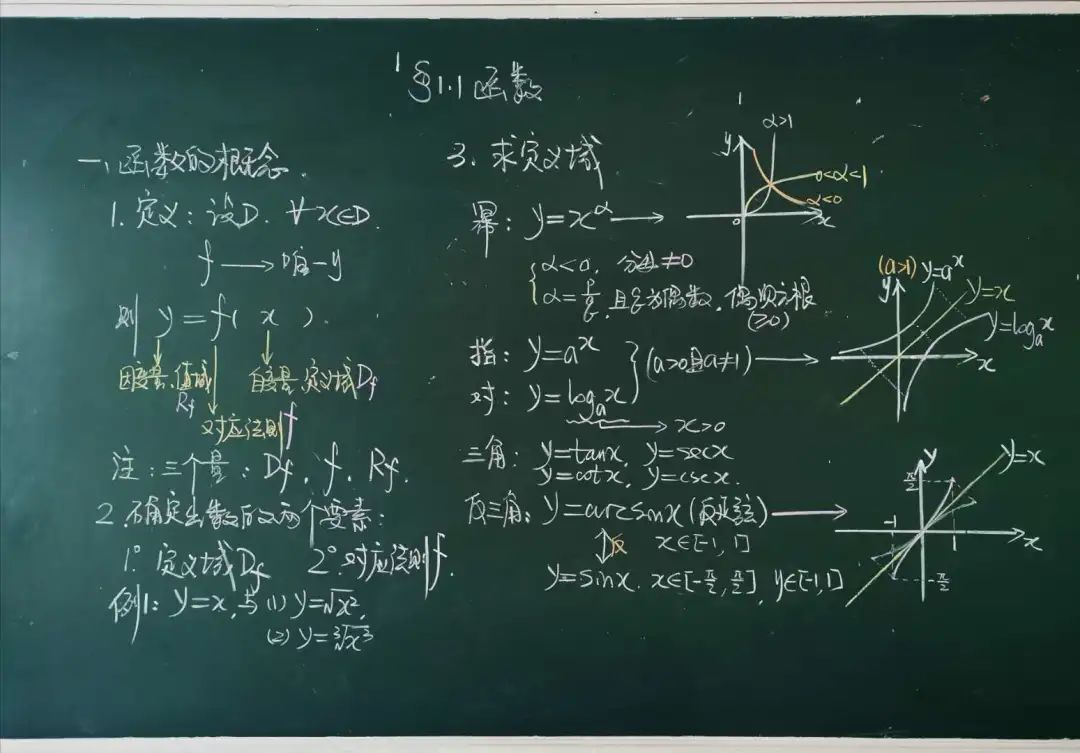 §1.1 函数
一、函数的概念.
1. 定义: 设D. ∀x∈D.
f ⟶ 唯一y
则 y = f( x ).
因变量, 值域 Rf
自变量, 定义域 Df
对应法则 f
注: 三个量: Df, f, Rf.
2. 确定函数的两个要素:
1° 定义域Df 2° 对应法则f.
例1: y=x, 与 (1) y=√x²,
(2) y=∛x³
3. 求定义域
幂: y=x^α ⟶
α<0, 分母≠0
α=p/q, 且q为偶数, 偶次方根
(≥0)
指: y=a^x
对: y=log_a x
(a>0且a≠1) ⟶
x>0
三角: y=tanx, y=secx
y=cotx, y=cscx.
反三角: y=arcsinx (反正弦) ⟶
反 x∈[-1, 1]
y=sinx. x∈[-π/2, π/2], y∈[-1,1]
y
α>1
0<α<1
α<0
0
x
(a>1)
y=a^x
y
y=x
y=log_a x
x
y
y=x
π/2
-1
1
x
-π/2